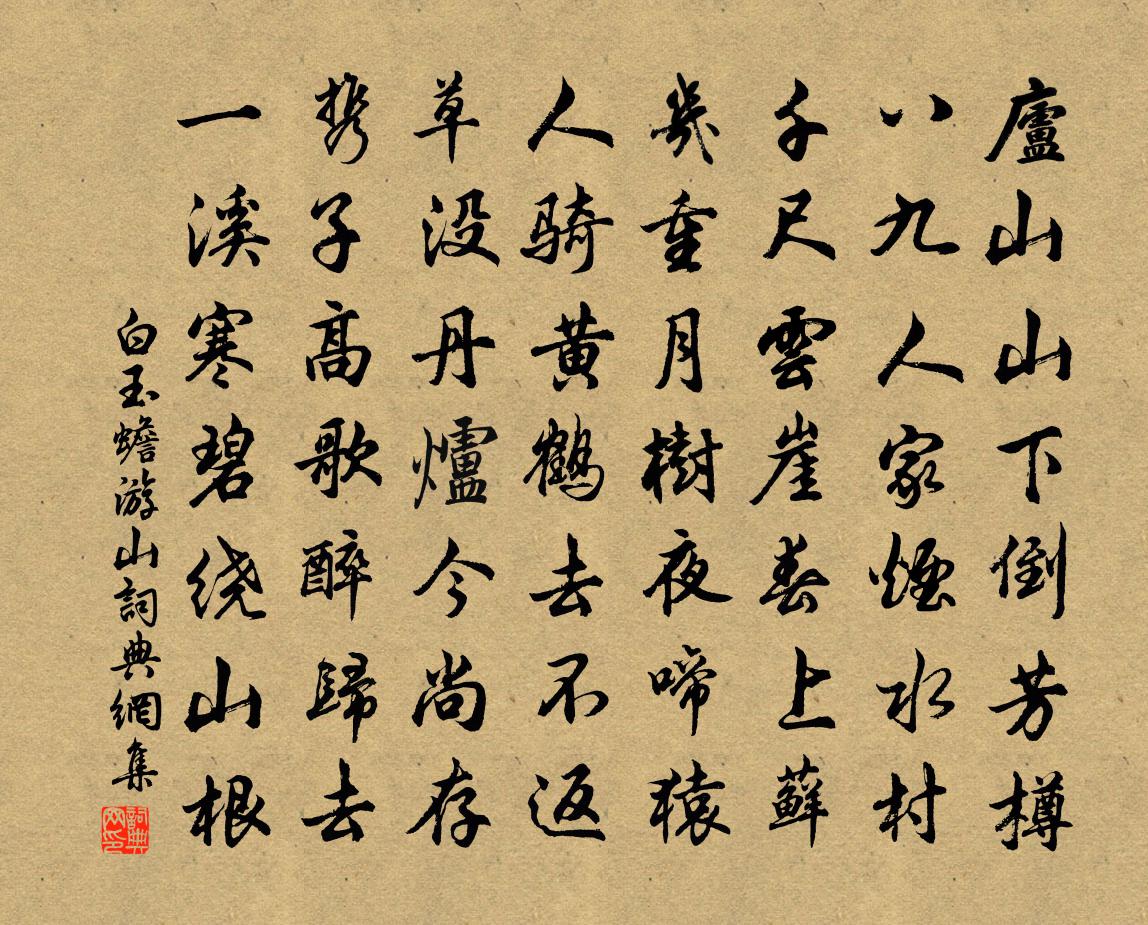 廬山山下倒芳樽
八九人家煙水村
千尺雲崖春上蘚
幾重月樹夜啼猿
人騎黄鶴去不返
草没丹爐今尚存
携子高歌醉歸去
一溪寒碧绕山根
白玉蟾游山詞典網集
詞典网印